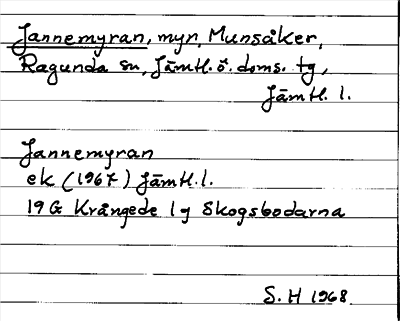 Jannemyran, myr, Munsåker,
Ragunda sn, Jämtl. ö. doms. tg,
Jämtl. l.
Jannemyran
ek (1967) Jämtl. l.
19 G Krångede 1 g Skogsbodarna
S. H 1968